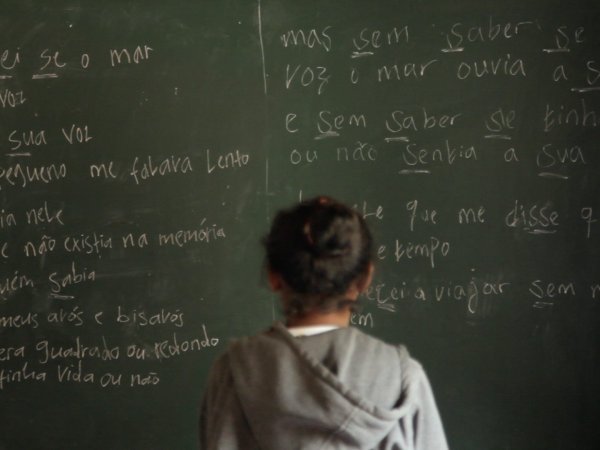 ei se o mar
voz
sua voz
pequeno me falava lento
ia nele
e não existia na memória
uém sabia
meus avós e bisavós
era quadrado ou redondo
tinha vida ou não
mas sem saber se
voz o mar ouvia a s
e sem saber se tinh
ou não sentia a sua
te que me disse q
e tempo
ecei a viajar sem m
em